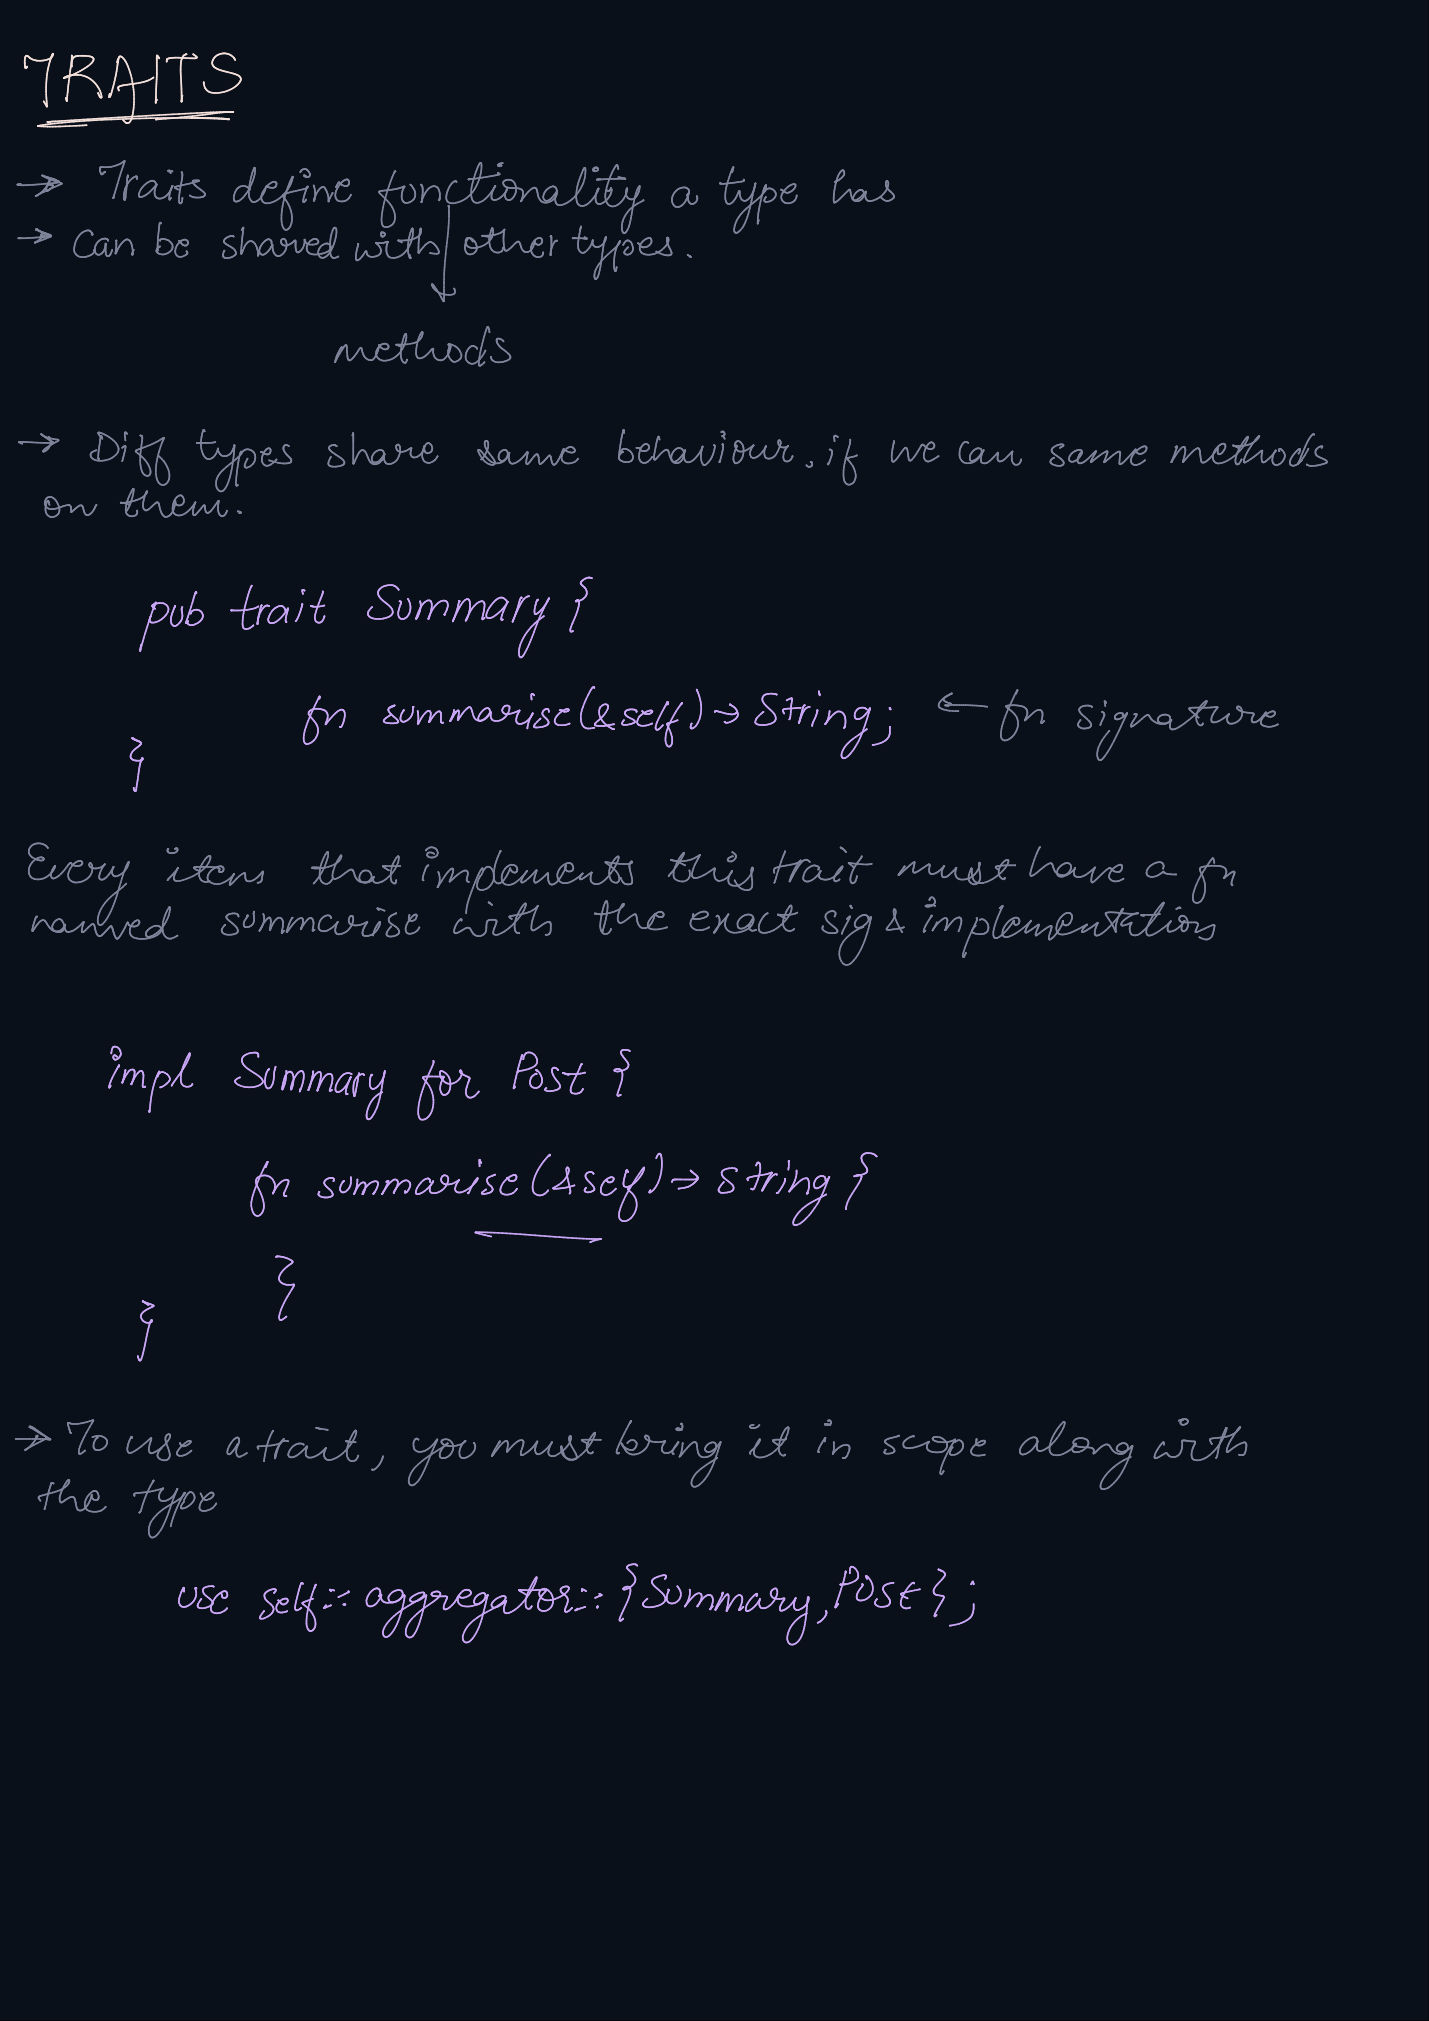 TRAITS
→ Traits define functionality a type has
→ Can be shared with other types.
methods
→ Diff types share same behaviour, if we can same methods
on them.
pub trait Summary {
fn summarise(&self) → String; ← fn signature
}
Every item that implements this trait must have a fn
named summarise with the exact sig & implementation
impl Summary for Post {
fn summarise (&self) → String {
}
}
→ To use a trait, you must bring it in scope along with
the type
use self::aggregator::{Summary, Post};